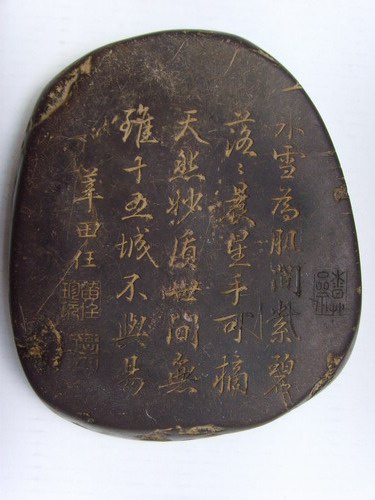 冰雪為肌間紫碧
落〻晨星手可摘
天然妙質世間無
雖千五城不與易
莘田任